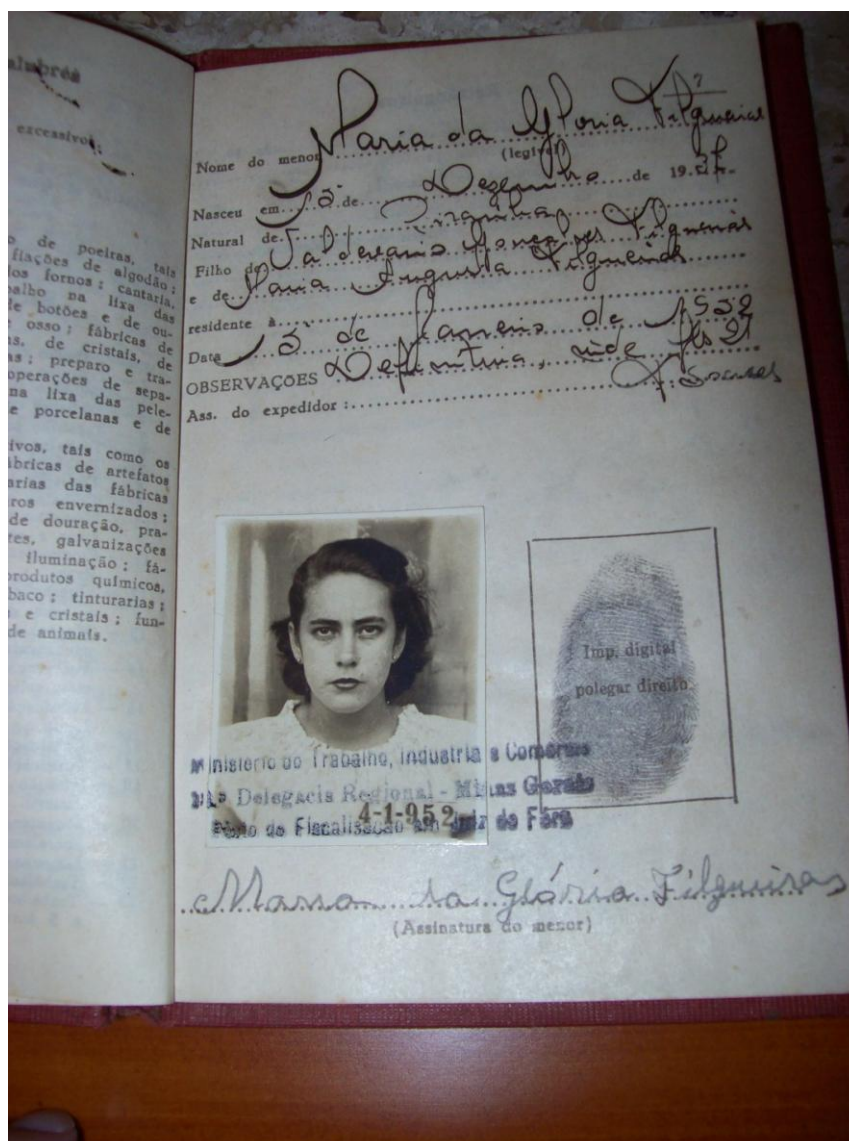 alubres
excessivos;
o de poeiras, tais
fiações de algodão;
los fornos; cantaria,
balho na lixa das
de botões e de ou-
e osso; fábricas de
s, de cristais, de
as; preparo e tra-
operações de sepa-
na lixa das pele-
e porcelanas e de
ivos, tais como os
ábricas de artefatos
arias das fábricas
ros envernizados;
de douração, pra-
tes, galvanizações
iluminação; fá-
produtos químicos,
baco; tinturarias;
e cristais; fun-
de animais.
Nome do menor Maria da Gloria Filgueiras
(legível)
Nasceu em de Dezembro de 19
Natural de
Filho de Gonçalves Filgueiras
e de Maria Augusta Filgueiras
residente à
Data de Janeiro de 1952
OBSERVAÇÕES Definitiva, vide fls 21
Ass. do expedidor: Soares
Imp. digital
polegar direito
Ministerio do Trabalho, Industria e Comercio
Delegacia Regional - Minas Gerais
4-1-952
Posto de Fiscalisação em Juiz de Fóra
Maria da Glória Filgueiras
(Assinatura do menor)